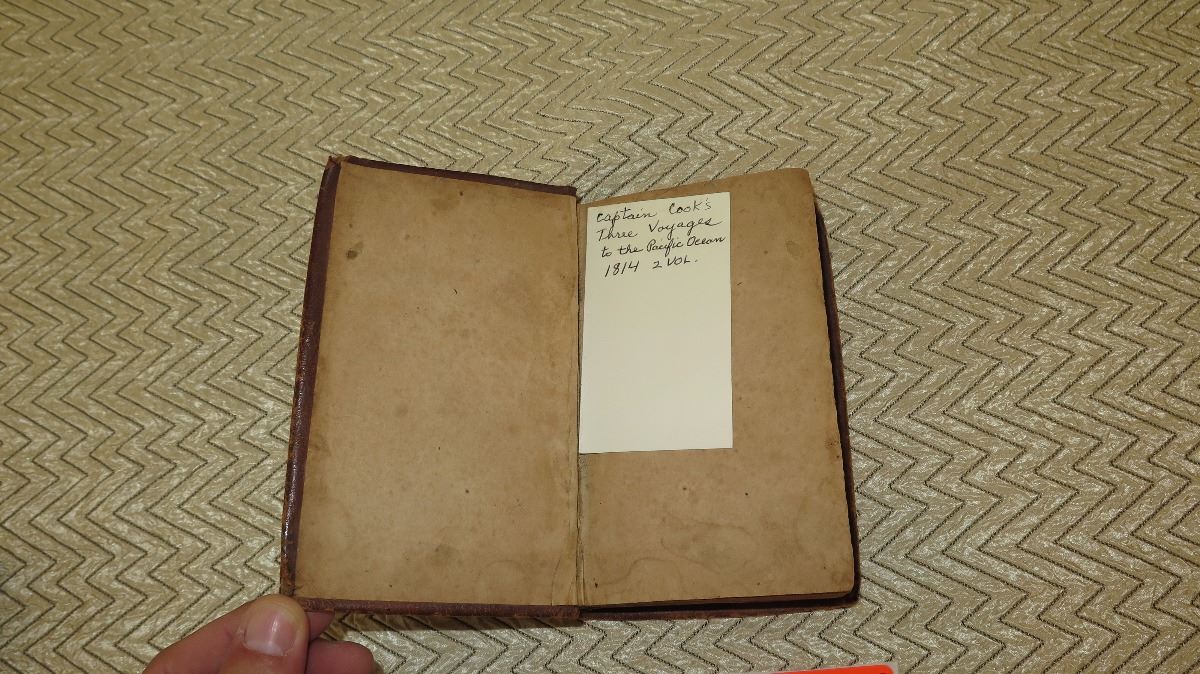 Captain Cook's
Three Voyages
to the Pacific Ocean
1814 2 VOL.